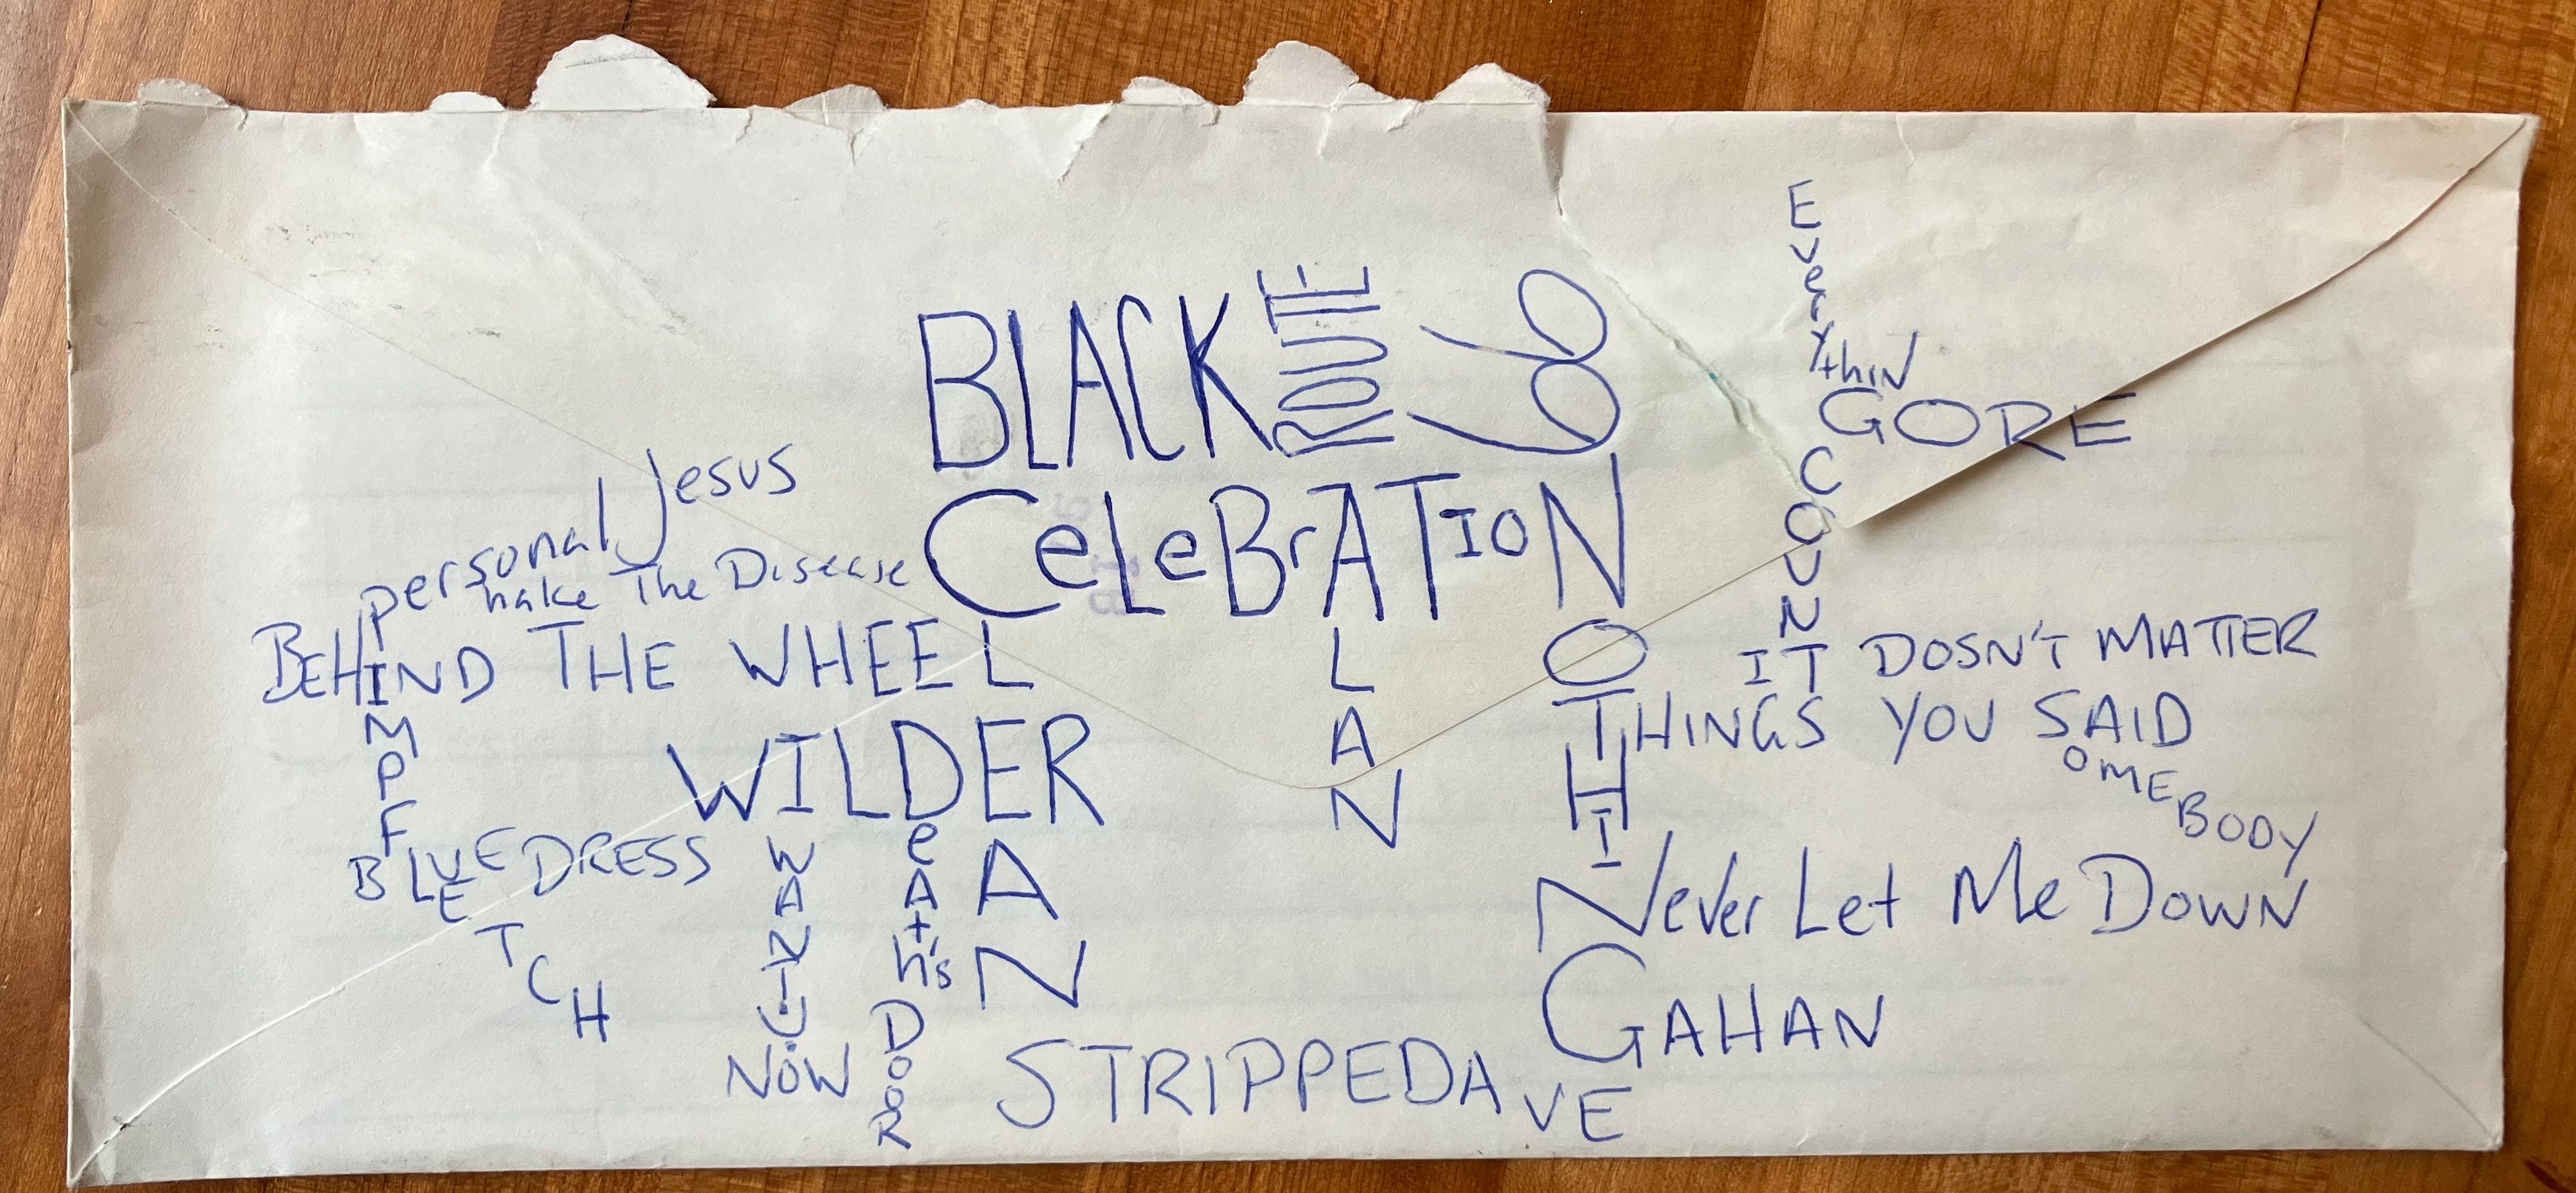 BLACK
ROUTE
66
CeLeBrATIoN
EverythIN
GORE
COUNT
personal Jesus
hake The Disease
BEHIND THE WHEEL
PIMPF
WILDER
ALAN
LEAN
NOTHING
IT DOSN'T MATTER
THINGS YOU SAID
SOMEBODY
BLUE DRESS
FLETCH
I WANT U
NOW
DeAth's
DOOR
Never Let Me DOWN
GAHAN
STRIPPEDAVE